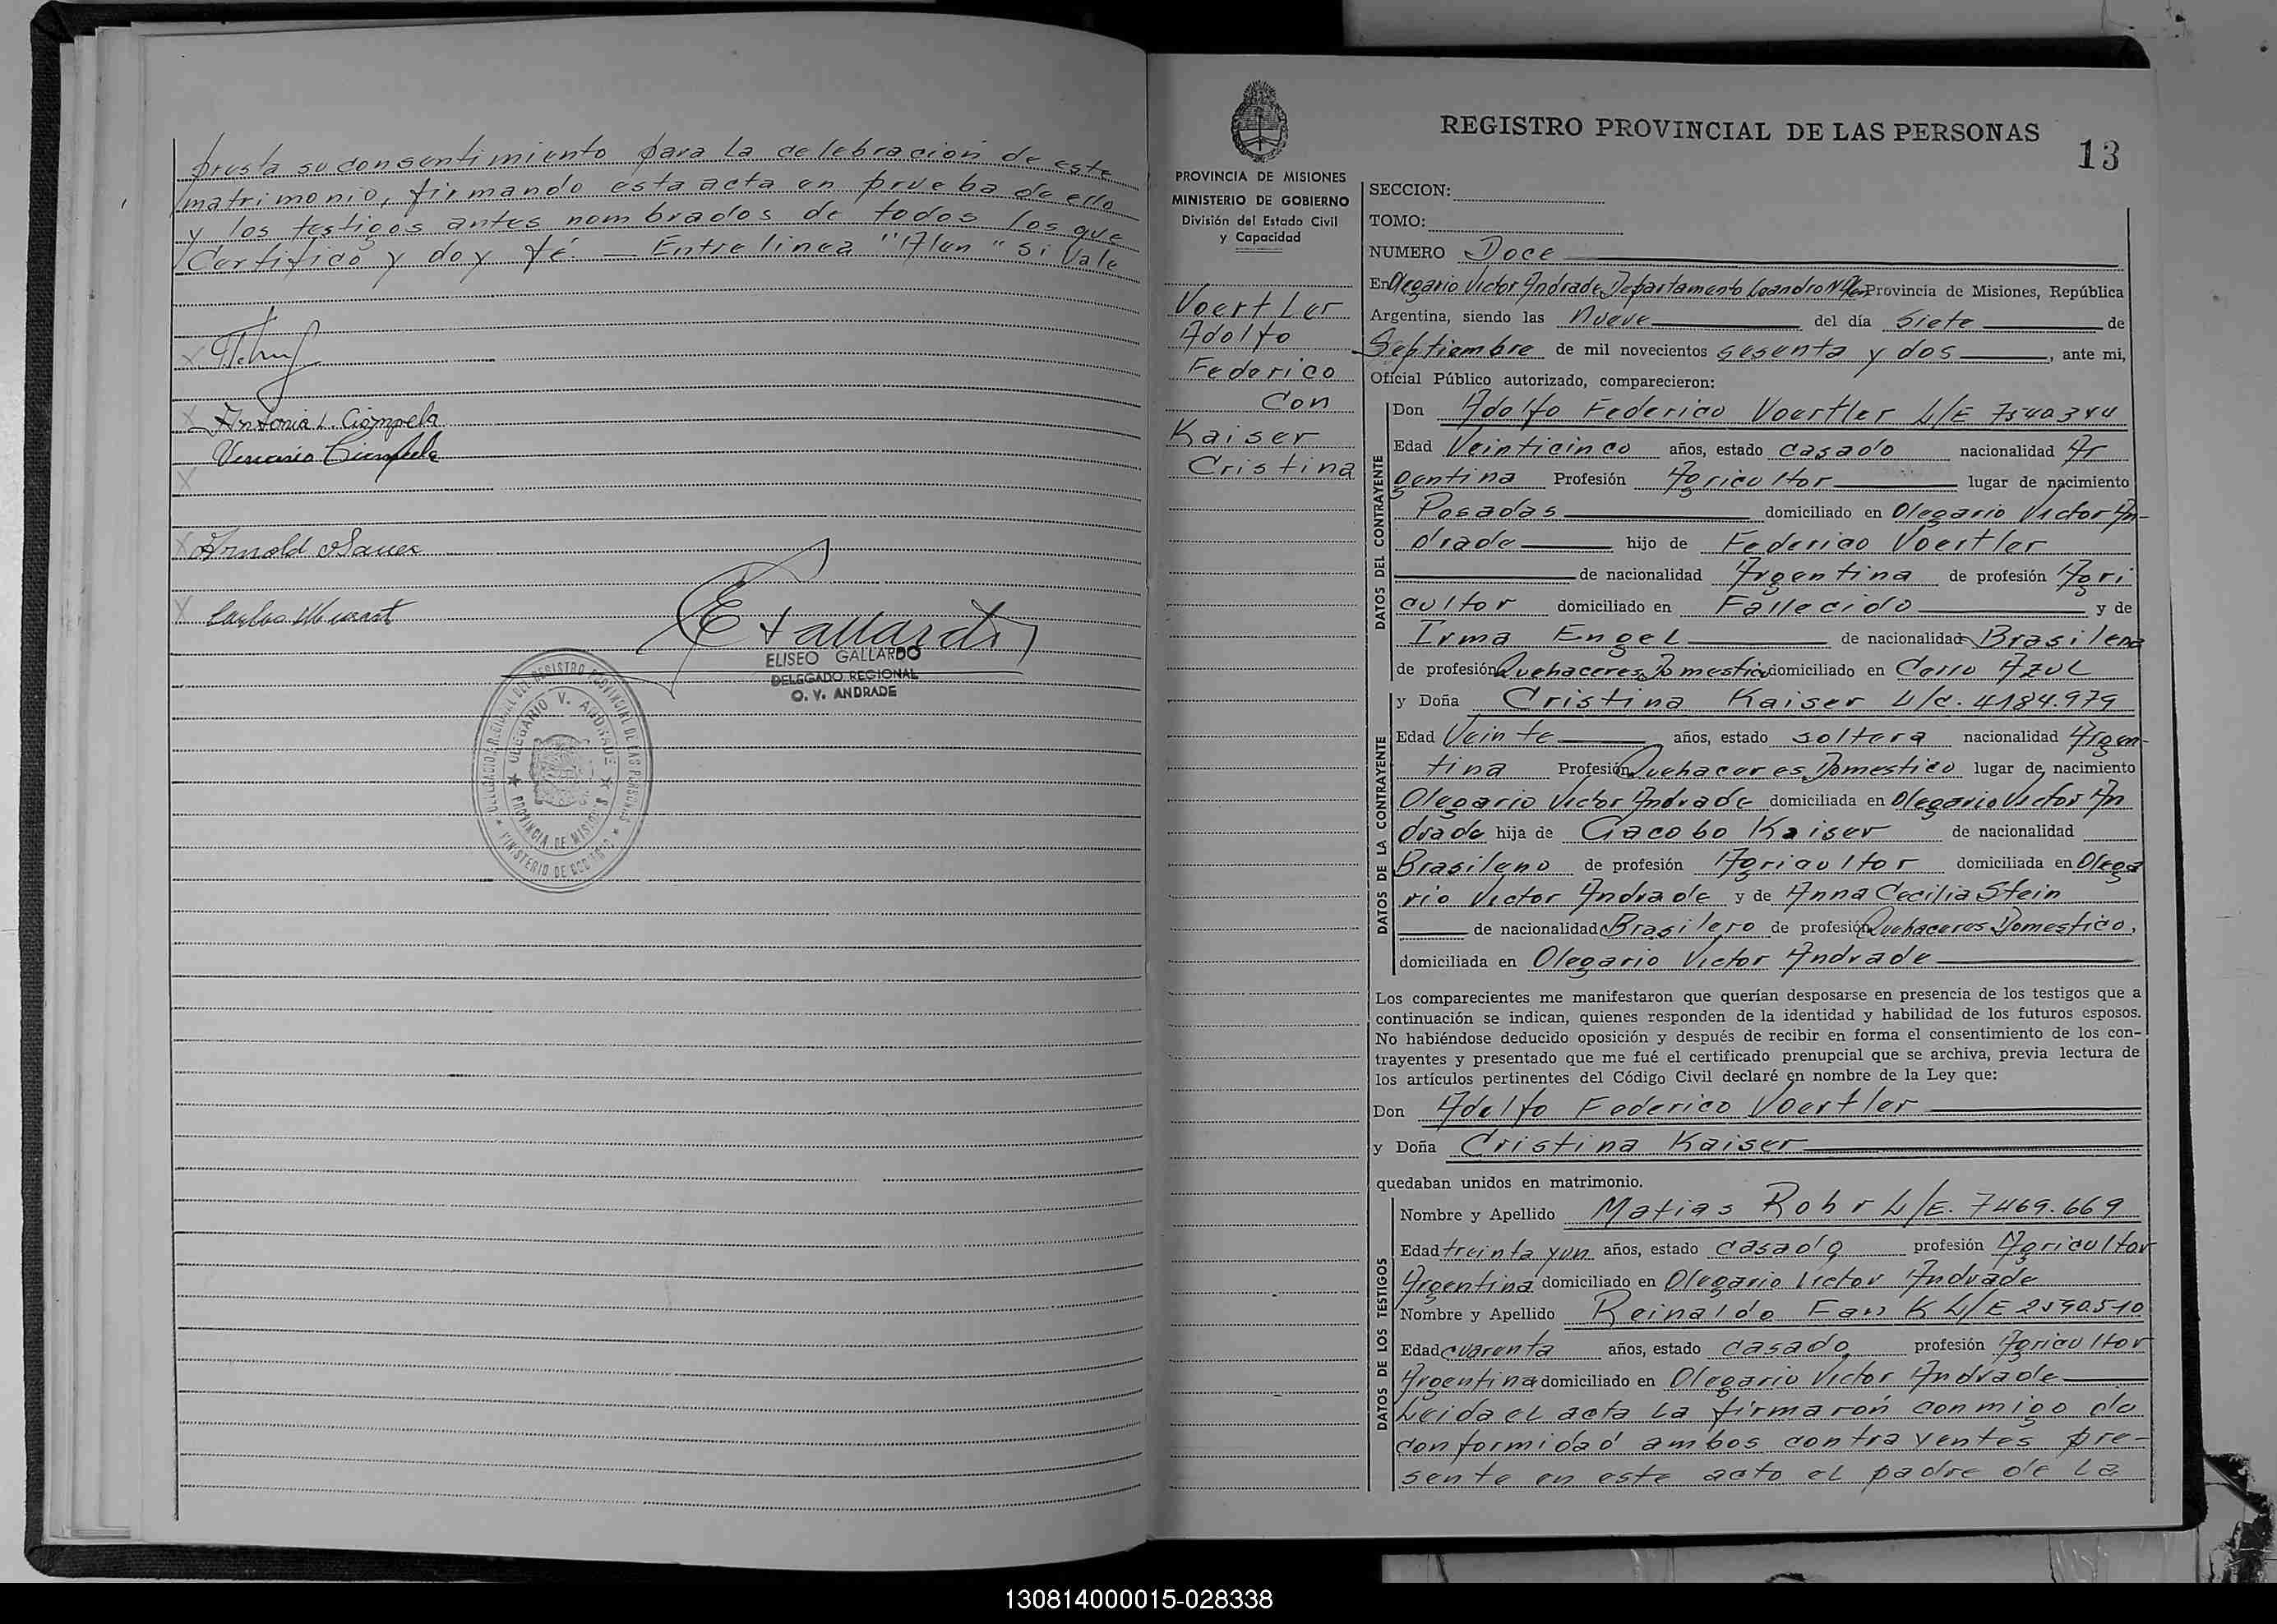 presta su consentimiento para la celebración de este
matrimonio, firmando esta acta en prueba de ello
y los testigos antes nombrados de todos los que
Certifico y doy fé — Entre linea "Alen" si Vale
Antonia L. Ciompela
Arnold Sauer
ELISEO GALLARDO
DELEGADO REGIONAL
O. V. ANDRADE
OLEGARIO V. ANDRADE
PROVINCIA DE MISIONES
REGISTRO PROVINCIAL DE LAS PERSONAS
13
PROVINCIA DE MISIONES
MINISTERIO DE GOBIERNO
División del Estado Civil
y Capacidad
Voertler
Adolfo
Federico
Con
Kaiser
Cristina
SECCION:
TOMO:
NUMERO Doce
En Olegario Victor Andrade, Departamento Leandro N. Alen Provincia de Misiones, República
Argentina, siendo las Nueve del día Siete de
Septiembre de mil novecientos sesenta y dos, ante mi,
Oficial Público autorizado, comparecieron:
DATOS DEL CONTRAYENTE
Don Adolfo Federico Voertler L/E 7540344
Edad Veinticinco años, estado casado nacionalidad Ar
gentina Profesión Agricultor lugar de nacimiento
Posadas domiciliado en Olegario Victor An-
drade hijo de Federico Voertler
de nacionalidad Argentina de profesión Agri
cultor domiciliado en Fallecido y de
Irma Engel de nacionalidad Brasilena
de profesión Quehaceres Domestico domiciliado en Cerro Azul
DATOS DE LA CONTRAYENTE
y Doña Cristina Kaiser L/c. 4184.979
Edad Veinte años, estado soltera nacionalidad Argen-
tina Profesión Quehaceres Domestico lugar de nacimiento
Olegario Victor Andrade domiciliada en Olegario Victor An
drade hija de Gacobo Kaiser de nacionalidad
Brasileno de profesión Agricultor domiciliada en Olega
rio Victor Andrade y de Anna Cecilia Stein
de nacionalidad Brasilero de profesión Quehaceres Domestico,
domiciliada en Olegario Victor Andrade
Los comparecientes me manifestaron que querían desposarse en presencia de los testigos que a
continuación se indican, quienes responden de la identidad y habilidad de los futuros esposos.
No habiéndose deducido oposición y después de recibir en forma el consentimiento de los con-
trayentes y presentado que me fué el certificado prenupcial que se archiva, previa lectura de
los artículos pertinentes del Código Civil declaré en nombre de la Ley que:
Don Adolfo Federico Voertler
y Doña Cristina Kaiser
quedaban unidos en matrimonio.
DATOS DE LOS TESTIGOS
Nombre y Apellido Matias Rohr L/E. 7469.669
Edad treinta y un años, estado casado profesión Agricultor
Argentina domiciliado en Olegario Victor Andrade
Nombre y Apellido Reinaldo Fank L/E 2590510
Edad cuarenta años, estado casado profesión Agricultor
Argentina domiciliado en Olegario Victor Andrade
Leida el acta la firmarón conmigo de
conformidad ambos contrayentes pre-
sente en este acto el padre de la
130814000015-028338